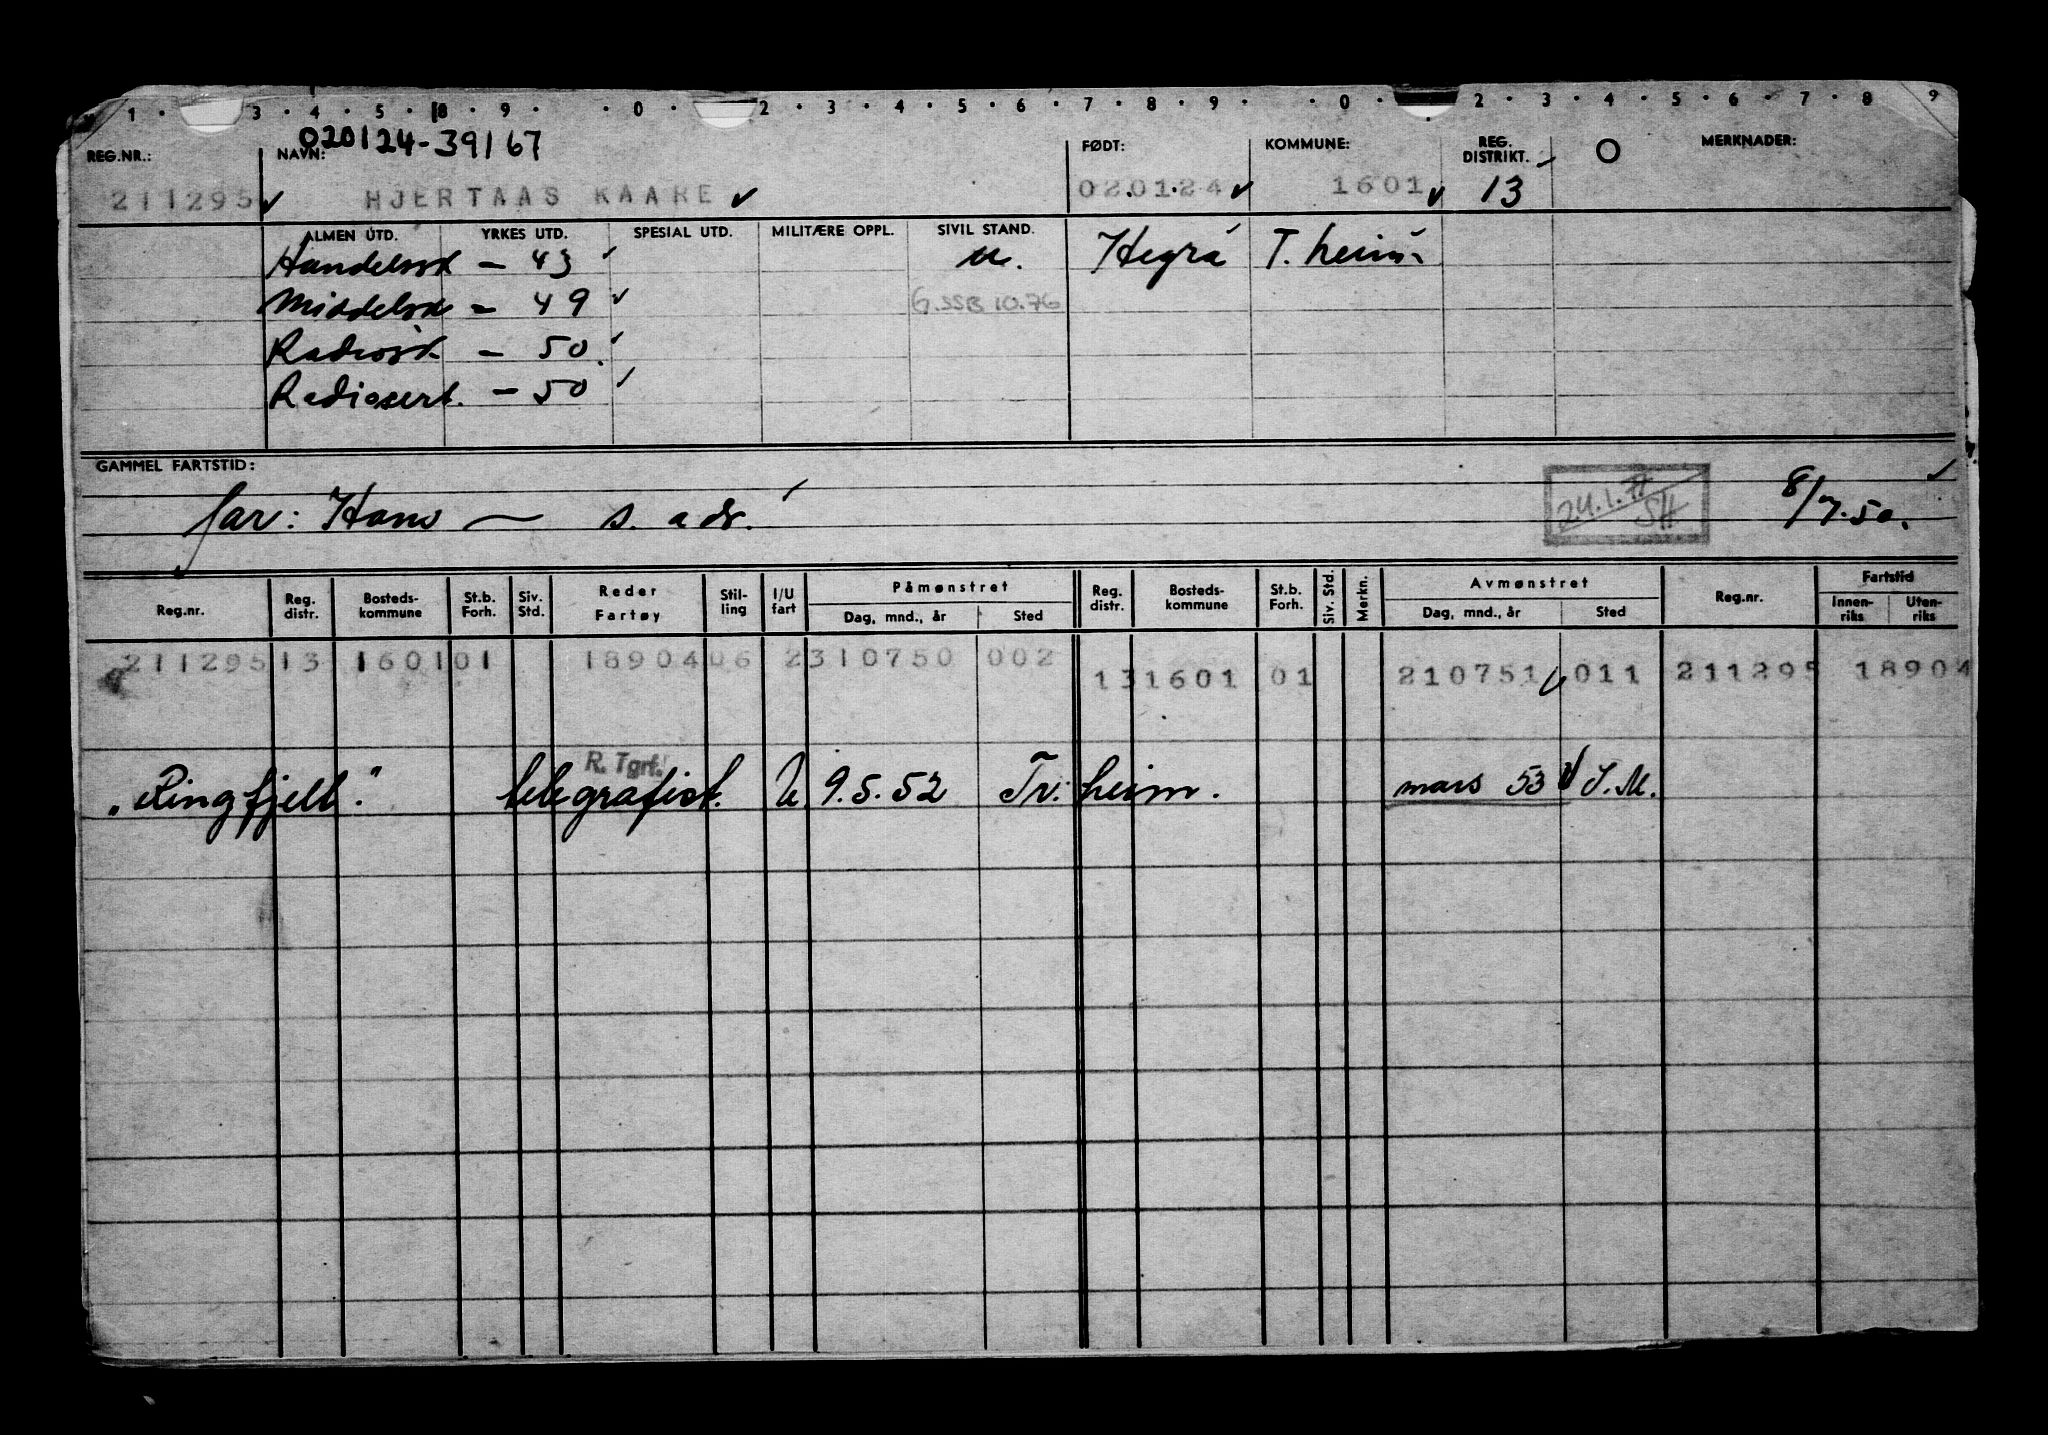 1 · 3 · 4 · 5 · 8 · 9 · · 0 · 2 · 3 · 4 · 5 · 6 · 7 · 8 · 9 · · 0 · 2 · 3 · 4 · 5 · 6 · 7 · 8 9
020124-39167
REG.NR.: NAVN: FØDT: KOMMUNE: REG. DISTRIKT. O MERKNADER:
211295 HJERTAAS KAARE 02.01.24 1601 13
ALMEN UTD. YRKES UTD. SPESIAL UTD. MILITÆRE OPPL. SIVIL STAND.
Handelssk - 43 u. Hegra T.heim
Middelsk - 49 G.SSB 10.76
Radiosk - 50.
Radiosert. - 50
GAMMEL FARTSTID:
far: Hans — s. adr. 24.1.77 SH 8/7.50.
Reg.nr. Reg. distr. Bosteds-kommune St.b. Forh. Siv. Std. Reder Fartøy Stil-ling I/U fart Påmønstret Dag, mnd., år Sted Reg. distr. Bosteds-kommune St.b. Forh. Siv. Std. Merkn. Avmønstret Dag, mnd., år Sted Reg.nr. Fartstid Innen-riks Uten-riks
211295 13 1601 01 18904 06 2 310750 002 13 1601 01 210751 011 211295 18904
R. Tgrf.
"Ringfjell." telegrafist. U 9.5.52 Tr.heim. mars 53 S.M.